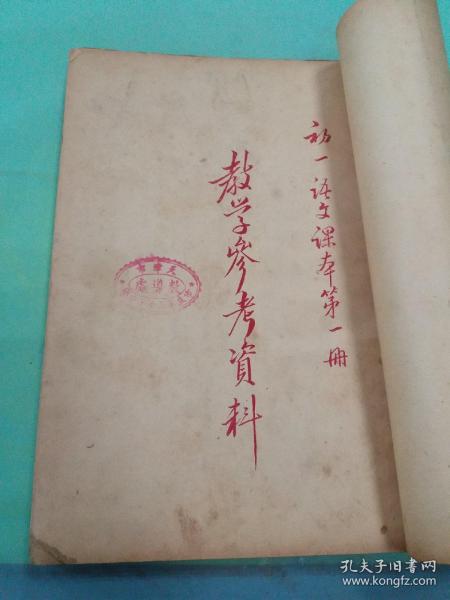 初一语文课本第一冊
教学参考資料
孔夫子旧书网
www.kongfz.com